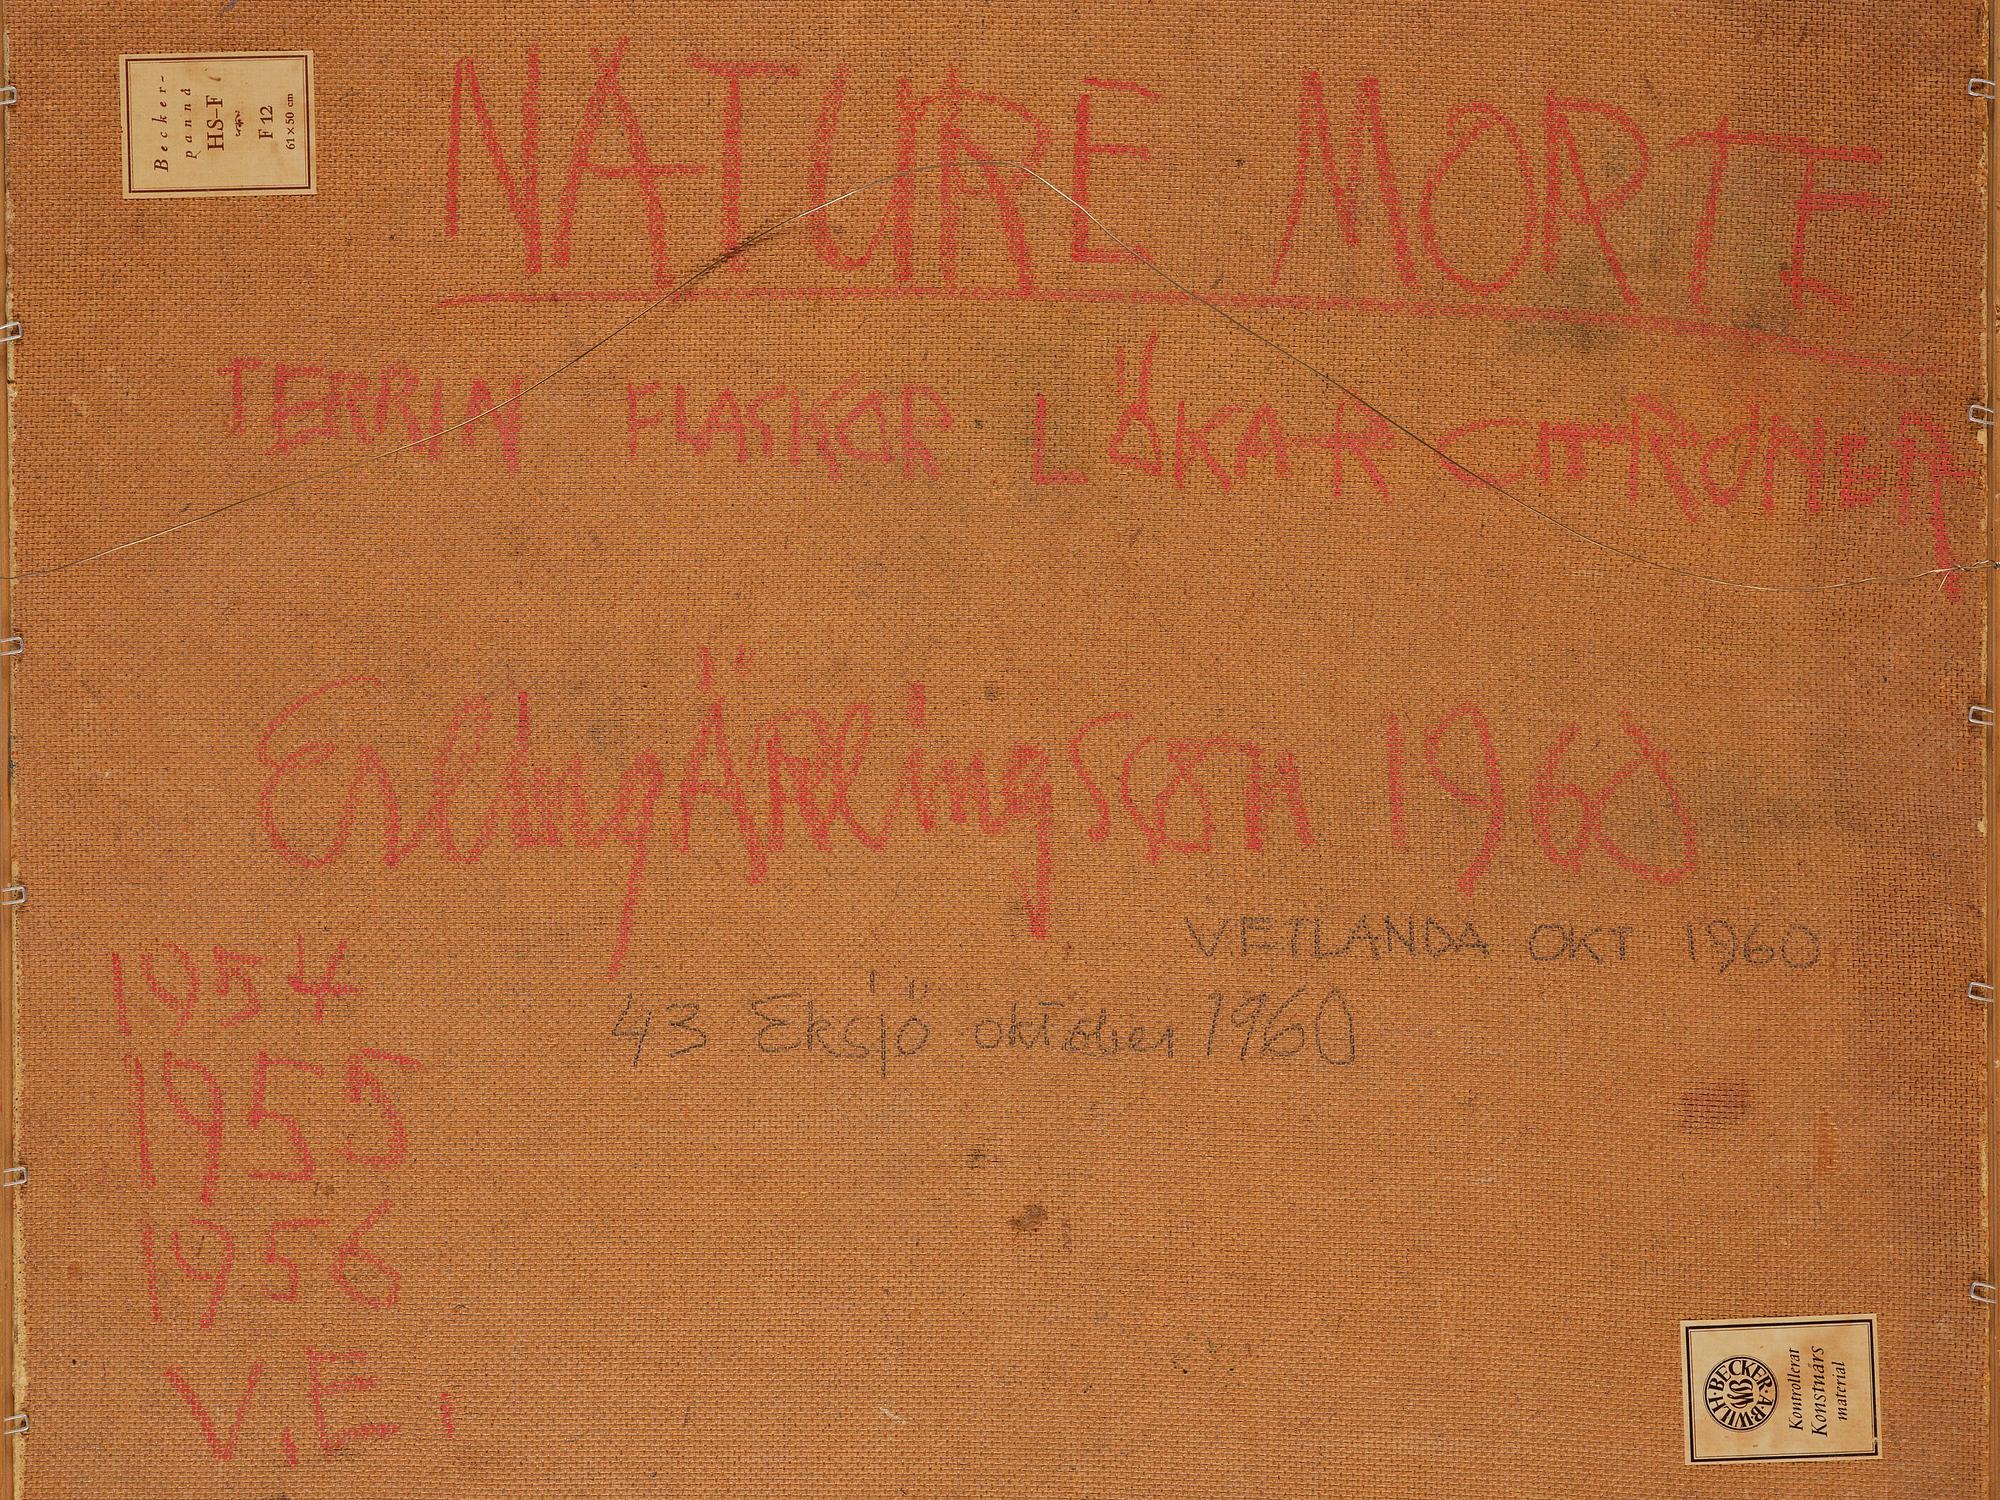 Becker-
pannå
HS-F
F 12
61 x 50 cm
NATURE MORTE
TERRIN FLASKOR LÖKAR CITRONER
Erling Ärlingsson 1960
VETLANDA OKT 1960
43 Eksjö oktober 1960
1954
1955
1956
V.E.
WILH. BECKER. A.B.
Kontrollerat
Konstnärs
material